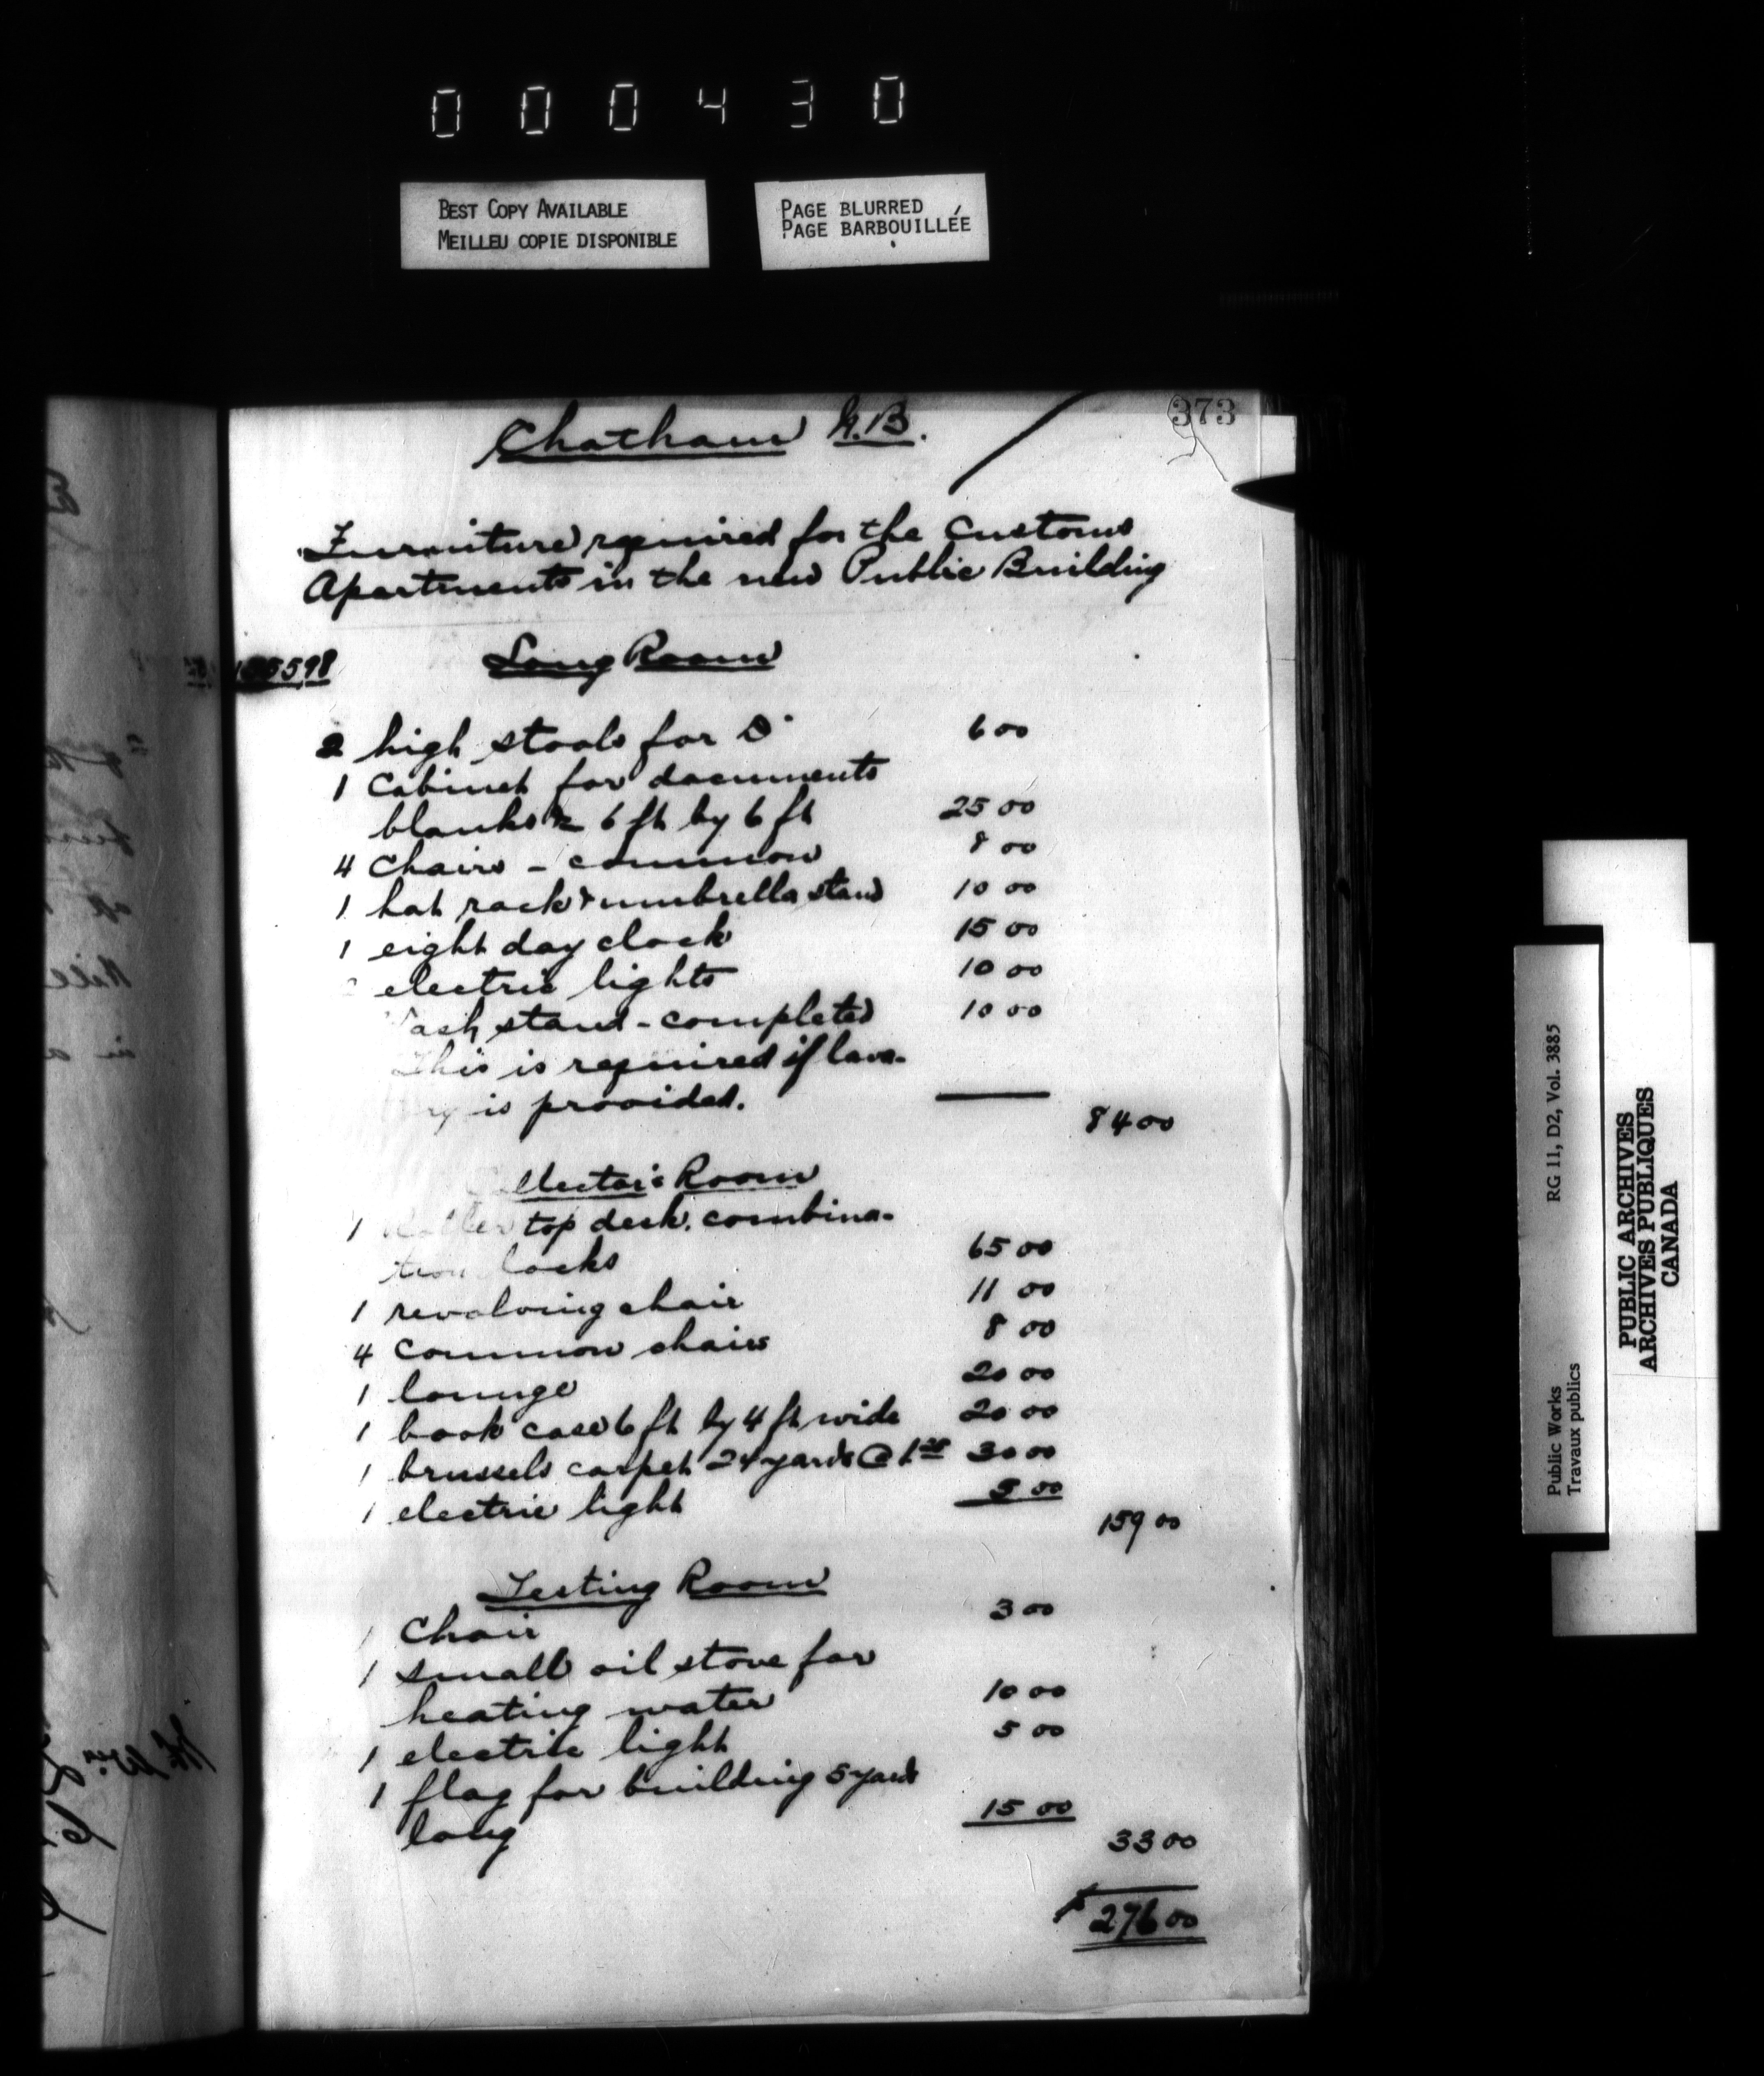 000430
BEST COPY AVAILABLE
MEILLEU COPIE DISPONIBLE
PAGE BLURRED
PAGE BARBOUILLÉE
373
Chatham N.B.
Furniture required for the Customs
Apartments in the new Public Building
Long Room
2 high stools for Do 6 00
1 Cabinet for documents
blanks 6 ft by 6 ft 25 00
4 Chairs - common 8 00
1 hat rack & umbrella stand 10 00
1 eight day clock 15 00
electric lights 10 00
ash stand - completed 10 00
This is required if lava-
ry is provided.
84 00
llector's Room
1 Roller top desk. combina-
tion locks 65 00
1 revolving chair 11 00
4 Common chairs 8 00
1 lounge 20 00
1 book case 6 ft by 4 ft wide 20 00
1 brussels carpet 24 yards @ 1.25 30 00
1 electric light 5 00
159 00
Testing Room
1 Chair 3 00
1 small oil stove for
heating water 10 00
1 electric light 5 00
1 flag for building 5 yards
long 15 00
33 00
$ 276 00
Public Works RG 11, D2, Vol. 3885
Travaux publics
PUBLIC ARCHIVES
ARCHIVES PUBLIQUES
CANADA